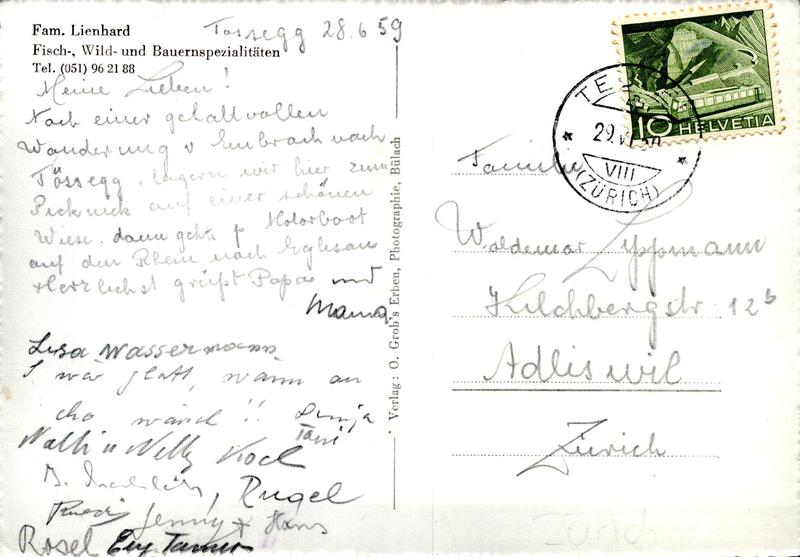 Fam. Lienhard
Fisch-, Wild- und Bauernspezialitäten
Tel. (051) 96 21 88
Tössegg 28.6 59
Meine Lieben!
Nach einer gehaltvollen
Wanderung v Embrach nach
Tössegg, lagern wir hier zum
Picknick auf einer schönen
Wiese, dann gehts p Motorboot
auf den Rhein nach Eglisau
Herzlichst grüßt Papa und
Mama
Lisa Wassermann
S wär glatt, wänn au
cho wärsch!!
Walti u Nelly Koch
Rugel
Jenny + Hans
Rosel
Verlag: O. Grob's Erben, Photographie, Bülach
10 HELVETIA
29.VI
VIII
(ZÜRICH)
Familie
Waldemar Lippmann
Kilchbergstr 12b
Adliswil
Zürich